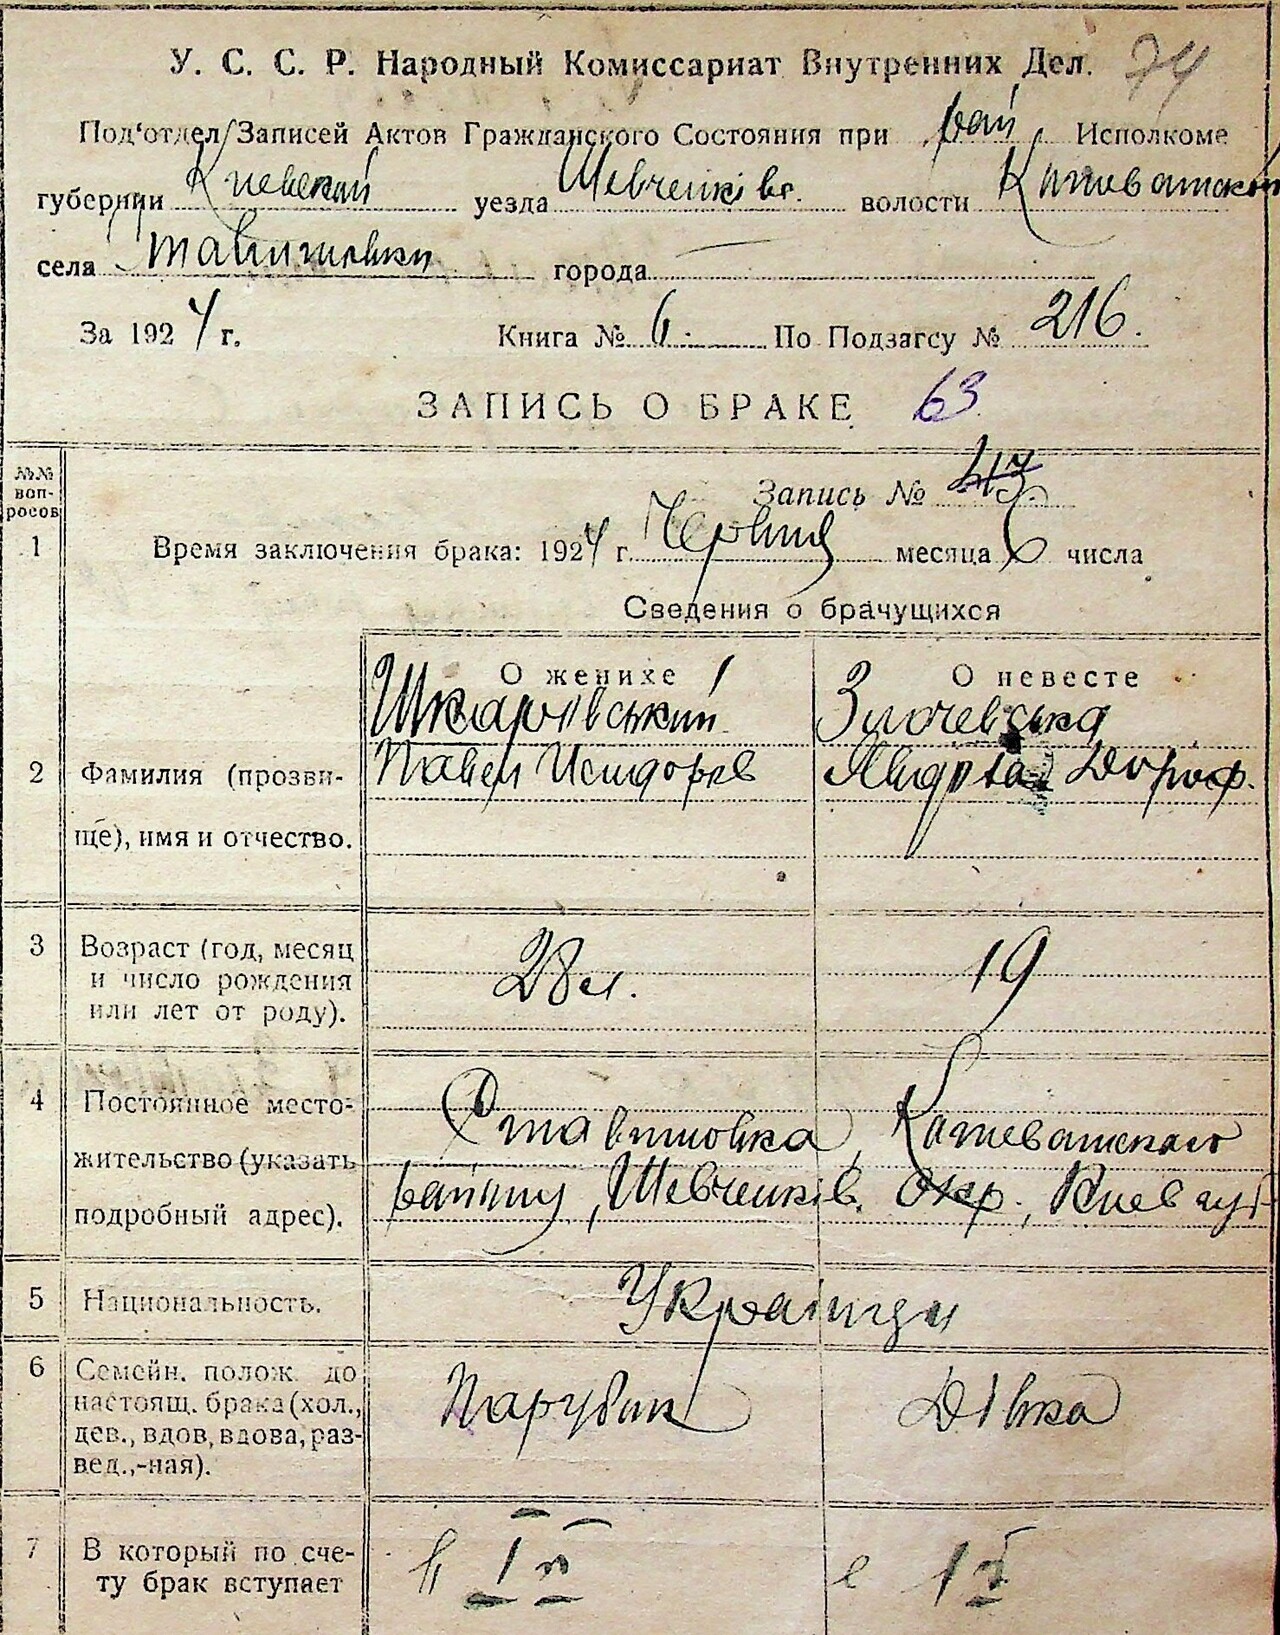 У. С. С. Р. Народный Комиссариат Внутренних Дел. 74
Под‘отдел Записей Актов Гражданского Состояния при рай Исполкоме
губернии Киевской уезда Шевченківс. волости Кашеватской
села города
За 1924 г. Книга № 6. По Подзагсу № 216.
ЗАПИСЬ О БРАКЕ 63
№№ вопросов
Запись №
1 Время заключения брака: 1924 г. Червня месяца числа
Сведения о брачущихся
О женихе О невесте
Шкаровський
2 Фамилия (прозви- Павел Исидоров Дороф.
ще), имя и отчество.
3 Возраст (год, месяц
и число рождения 28 л. 19
или лет от роду).
4 Постоянное место- Ставишовка, Кашеватского
жительство (указать району, Шевченків. Окр., Киев губ
подробный адрес).
5 Национальность. Українци
6 Семейн. полож. до
настоящ. брака (хол., Парубок Дівка
дев., вдов, вдова, раз-
вед.,-ная).
7 В который по сче-
ту брак вступает